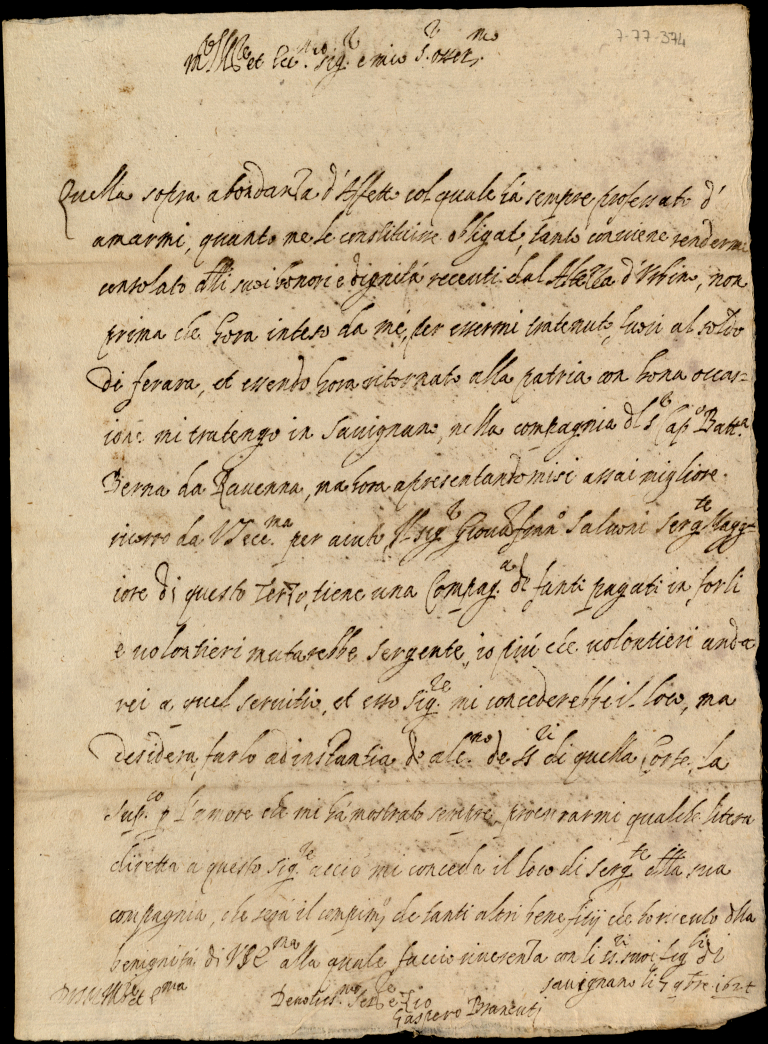 7-77-374
et Ecc.mo sig.re e mio S.re osser.mo
Quella sopra abondanza d'Affett col quale há sempre professato d'
amarmi, quanto me le constituisse obligat, tanto conviene rendermi
consolato dlli suoi honori e dignitá recenti dal Altezza d'Urbino, non
prima che hora inteso da me, per essermi tratenuto fuori al soldo
di ferara, et essendo hora ritornato alla patria con bona occas=
ione mi tratengo in Savignano, nella compagnia dl s.re Cap.o Batt.a
Berna da Ravenna, ma hora apresentandomisi assai migliore
ricorro da V S ecc.ma per aiuto, Il sig.re Giovanfran.o Salvoni serg.te Magg=
iore di questo Terzo, tiene una Compag.a de fanti pagati in forli
e volontieri mutarebbe sergente, io piú che volontieri anda
rei a quel servitio, et esso sig.re mi concederebbe il loco, ma
desidera farlo ad instantia de alc.no de ss.ri di quella Corte, la
sup.co p l'amore che mi há mostrato sempre procurarmi qualche litera
diretta a questo sig.re acció mi conceda il loco di serg.te dlla sua
compagnia, che sará il compim.o de tanti altri benefitij che ho riceuto dlla
benignitá di V S E.ma alla quale faccio riverenza con li ss.ri suoi figli di
savignano li 7 9bre 1624
Di V S M.re et E.ma
Devotiss.mo Ser.re e Zio
Gaspero Brancuti